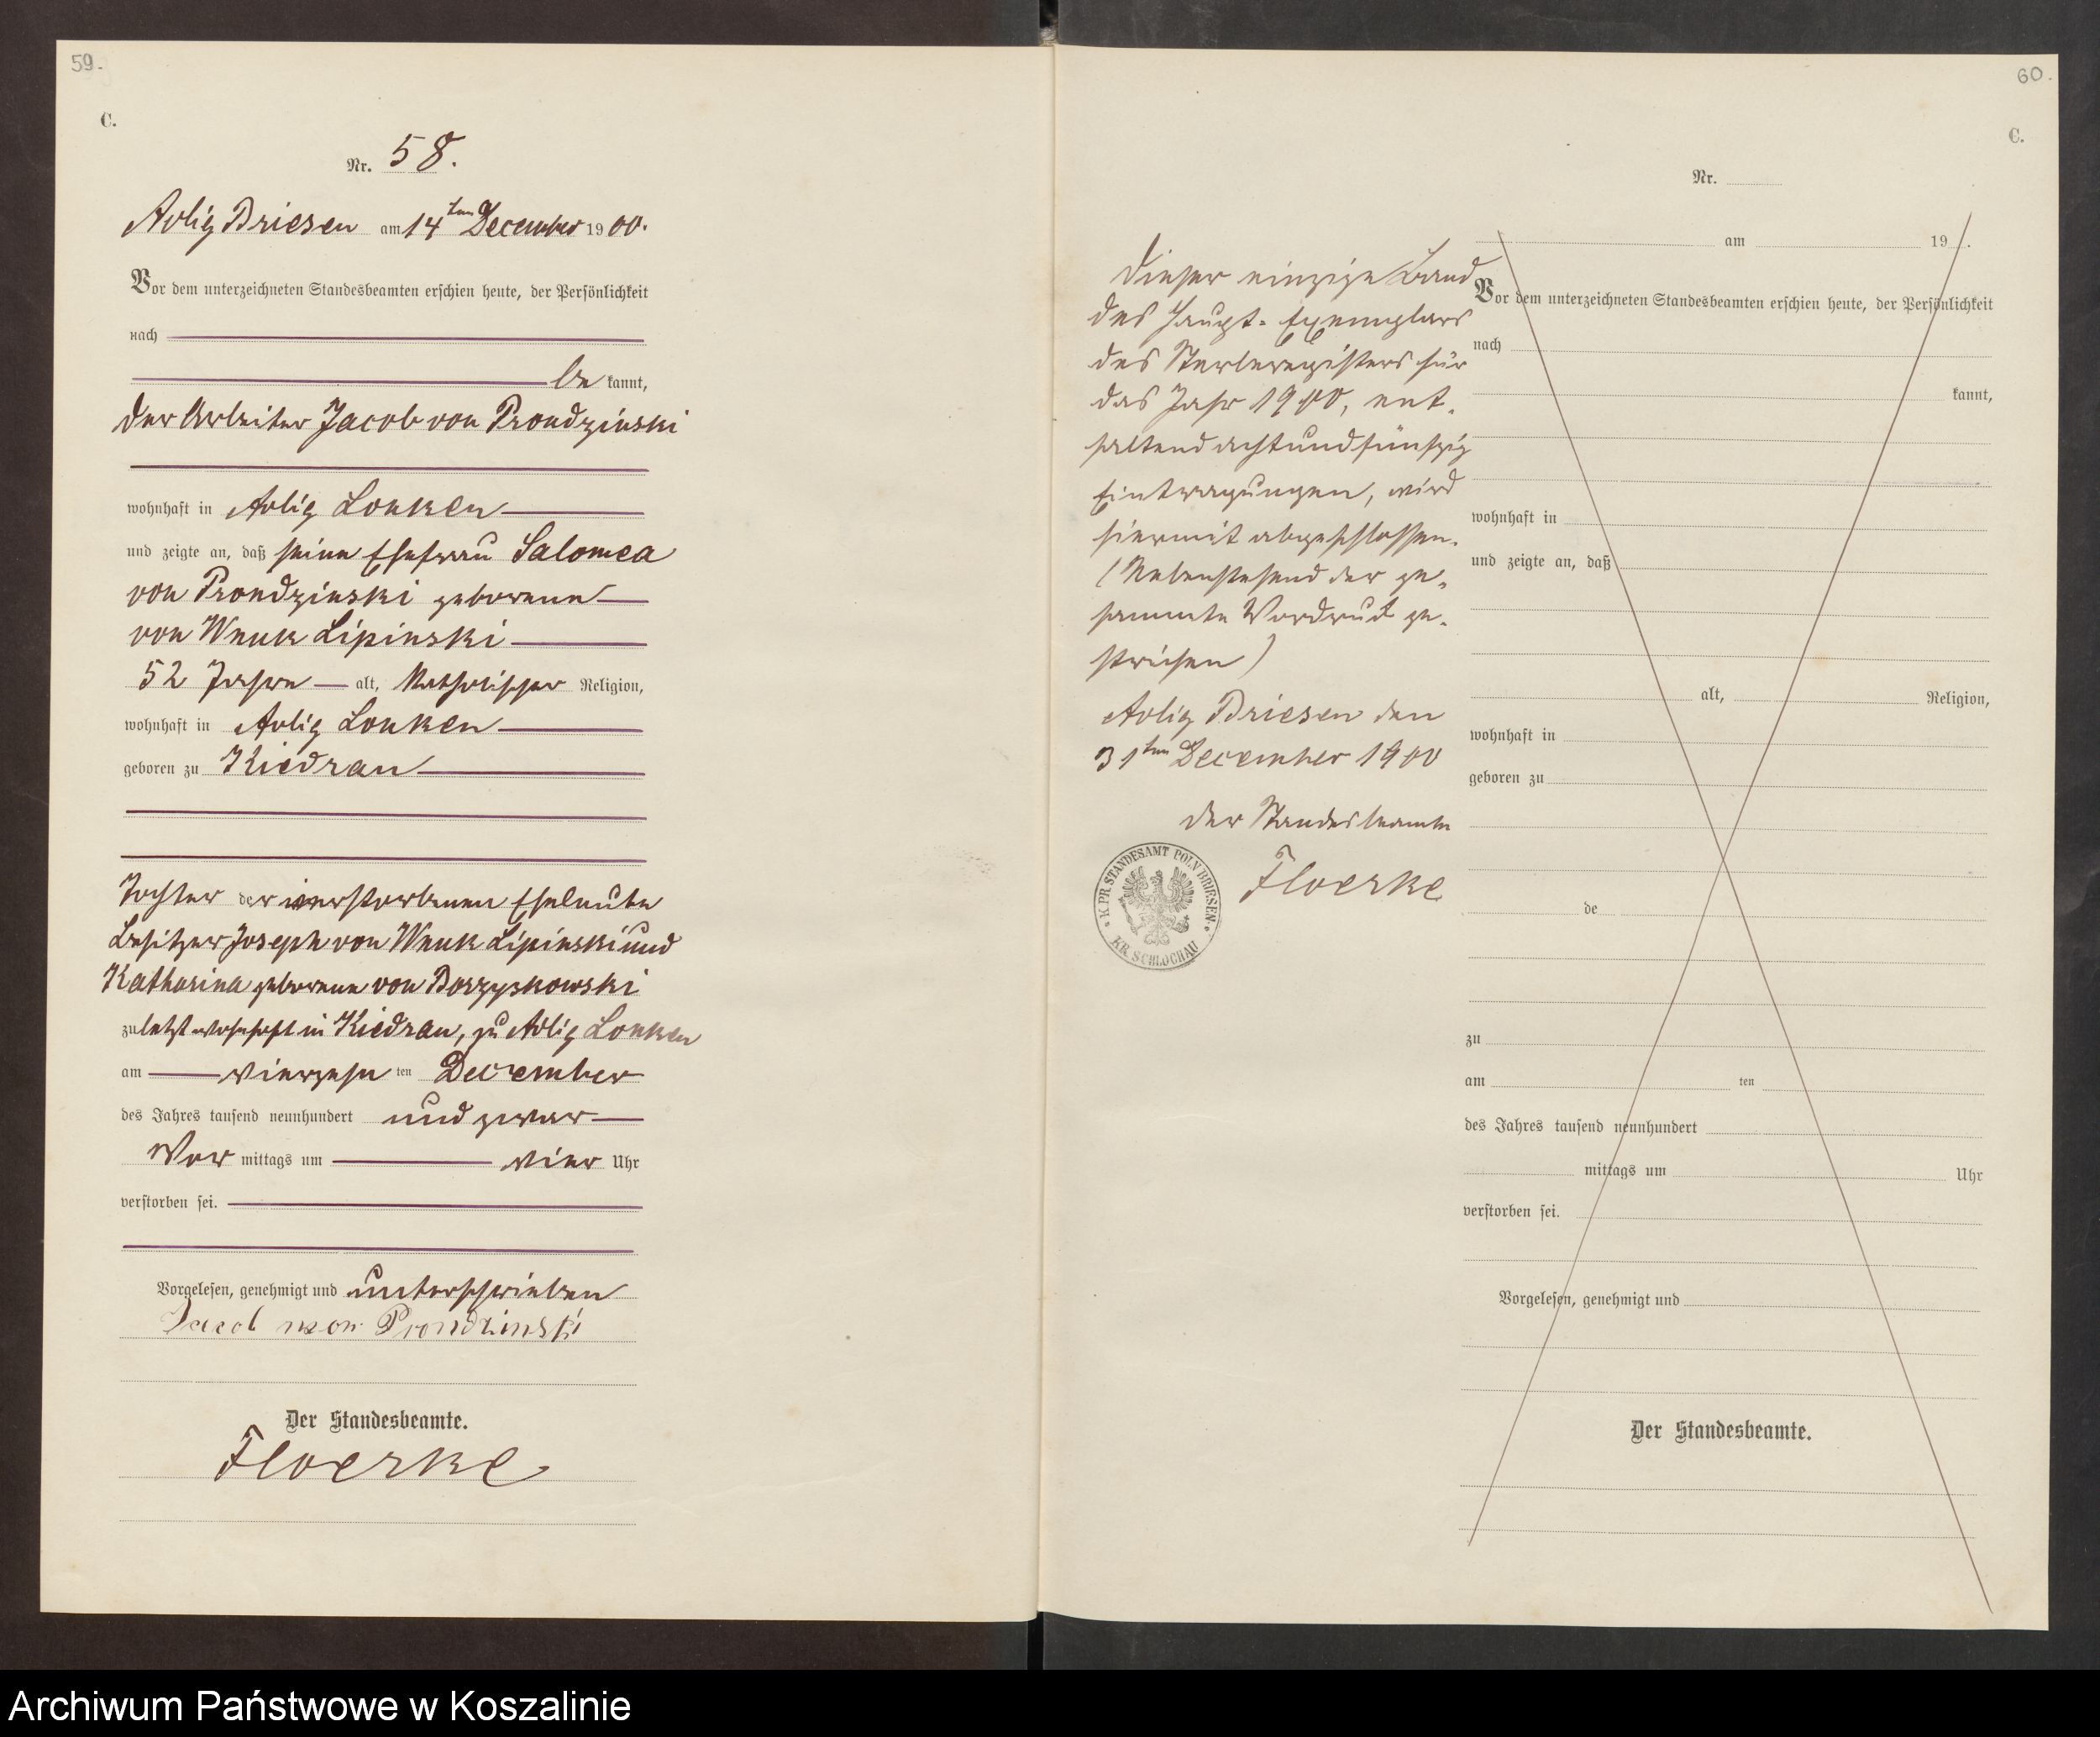 59.
C.
Nr. 58.
Adlig Briesen am 14ten December 1900.
Vor dem unterzeichneten Standesbeamten erschien heute, der Persönlichkeit
nach
be kannt,
der Arbeiter Jacob von Prondzinski
wohnhaft in Adlig Lonken
und zeigte an, daß seine Ehefrau Salomea
von Prondzinski geborene
von Wnuk Lipinski
52 Jahre alt, katholischer Religion,
wohnhaft in Adlig Lonken
geboren zu Kiedrau
Tochter der verstorbenen Eheleute
Besitzer Joseph von Wnuk Lipinski und
Katharina geborene von Borzyskowski
zuletzt wohnhaft in Kiedrau, zu Adlig Lonken
am vierzehn ten December
des Jahres tausend neunhundert und zwar
Vor mittags um vier Uhr
verstorben sei.
Vorgelesen, genehmigt und unterschrieben
Jacob von Prondzinski
Der Standesbeamte.
Floerke
60.
C.
Nr.
am 19 .
Vor dem unterzeichneten Standesbeamten erschien heute, der Persönlichkeit
nach
kannt,
wohnhaft in
und zeigte an, daß
alt, Religion,
wohnhaft in
geboren zu
de
zu
am ten
des Jahres tausend neunhundert
mittags um Uhr
verstorben sei.
Vorgelesen, genehmigt und
Der Standesbeamte.
Dieser einzige Band
des Haupt-Exemplars
des Sterberegisters für
das Jahr 1900, ent-
haltend achtundfünfzig
Eintragungen, wird
hiermit abgeschlossen.
(Nebenstehend der ge-
sammte Vordruck ge-
strichen)
Adlig Briesen den
31ten December 1900
Der Standesbeamte
Floerke
K. PR. STANDESAMT POLN. BRIESEN.
KR. SCHLOCHAU
Archiwum Państwowe w Koszalinie